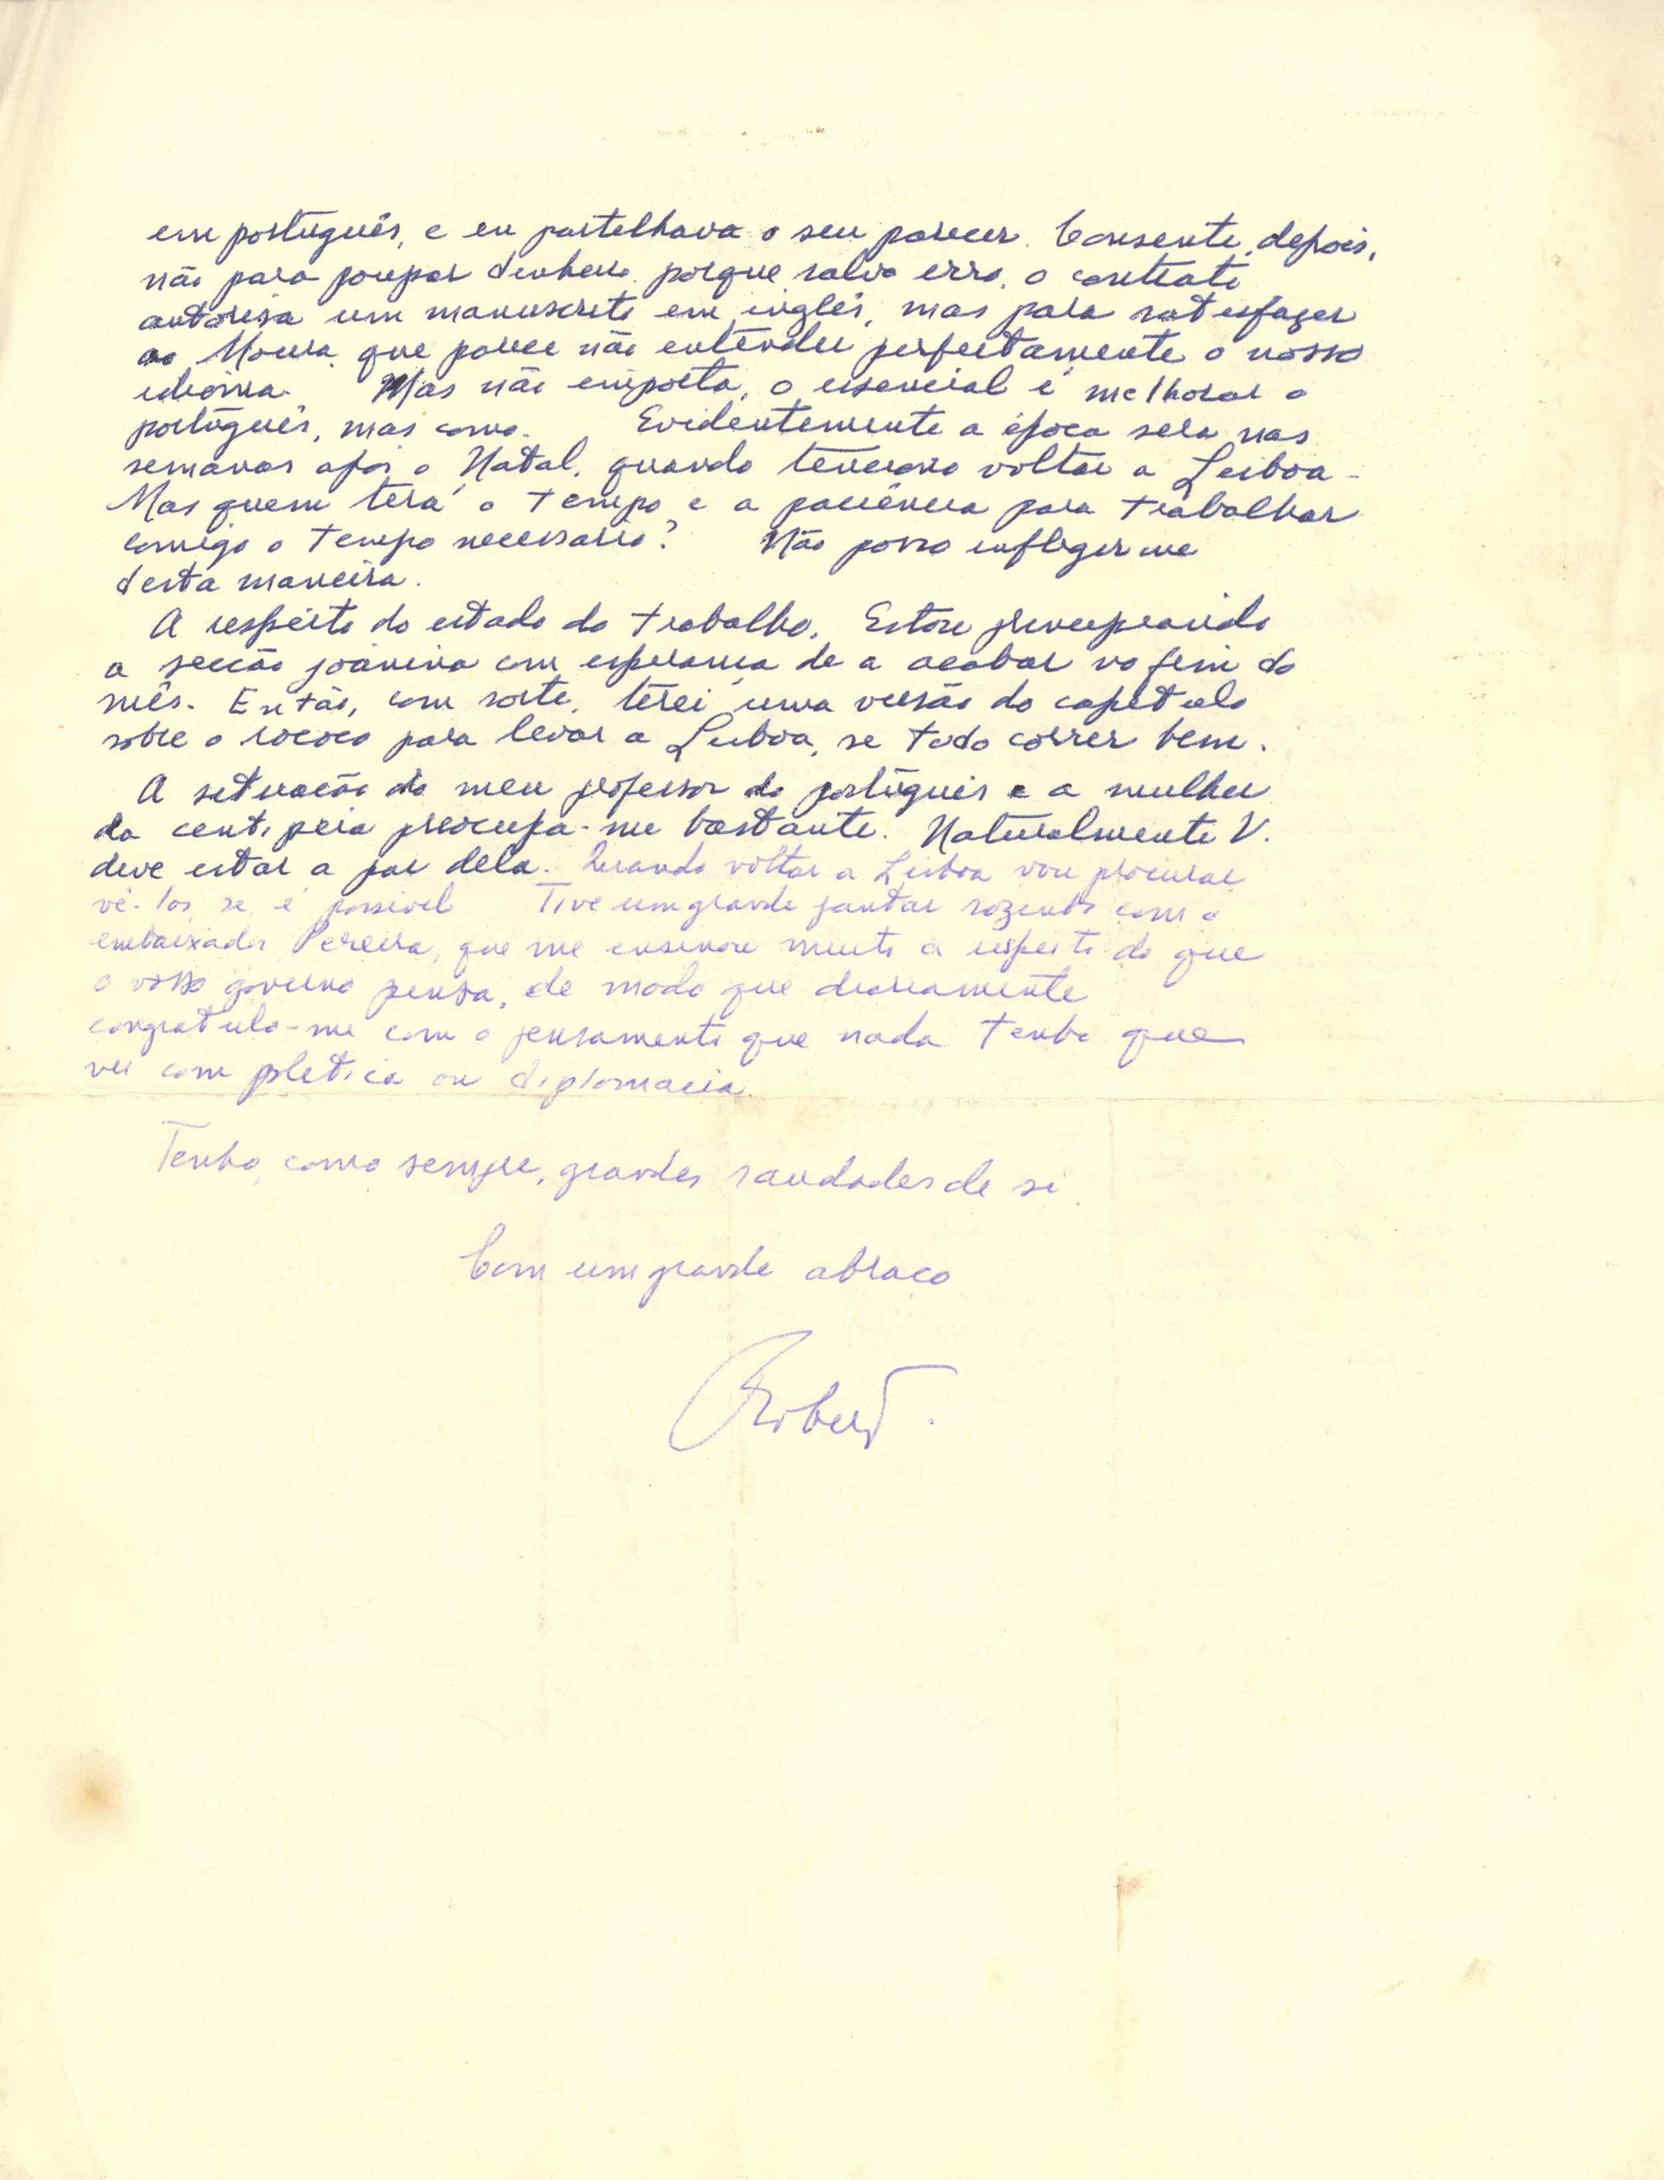 em português, e eu partelhava o seu parecer. Consente, depois,
não para poupar denheiro, porque salvo erro, o contrato
autorisa um manuscrito em inglés, mas para satesfazer
ao Moura, que parece não entender perfeitamente o nosso
idioma. Mas não emporta, o essencial é melhorar o
portugués, mas como. Evidentemente a época sera nas
semanas após o Natal, quando tenciono voltar a Lisboa.
Mas quem terá o tempo e a paciência para trabalhar
comigo o tempo necessario? Não posso enfleger me
desta maneira.
A respeito do estado do trabalho. Estou
a secção joanina com esperança de a acabar no fim do
mês. Então, com sorte, terei uma versão do capetulo
sobre o rococo para levar a Lisboa, se todo correr bem.
A setuação do meu professor do portúguês e a mulher
da preocupa-me bastante. Naturalmente V.
deve estar a par dela. Quando voltar a Lisboa vou procurar
vê-los, se é possivel Tive um grande jantar sozenho com o
embaixador Pereira, que me ensinou muito a respeito do que
o vosso governo pensa, de modo que diareamente
congratulo-me com o pensamento que nada tenho que
ver com pletica ou diplomacia.
Tenho, como sempre, grandes saudades de si.
Com um grande abraço
Robert.